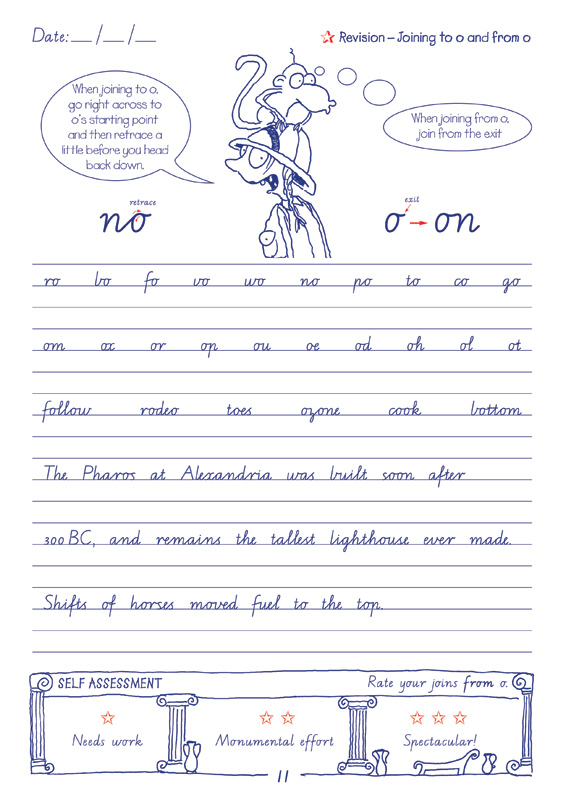 Date:__/__/__
☆ Revision – Joining to o and from o
When joining to o,
go right across to
o's starting point
and then retrace a
little before you head
back down.
When joining from o,
join from the exit
retrace
no
exit
o → on
ro bo fo vo wo no po to co go
om ox or op ou oe od oh ol ot
follow rodeo toes ozone cook bottom
The Pharos at Alexandria was built soon after
300 BC, and remains the tallest lighthouse ever made.
Shifts of horses moved fuel to the top.
SELF ASSESSMENT
Rate your joins from o.
☆ ☆ ☆ ☆ ☆ ☆
Needs work Monumental effort Spectacular!
11